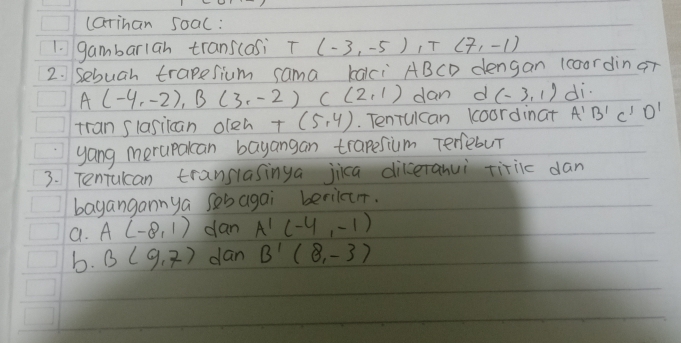 Latihan soal:
1. gambarlah translasi T (-3,-5), T (7,-1)
2. Sebuah trapesium sama kaki ABCD dengan koordinat
A (-4,-2), B (3,-2) C (2,1) dan d (-3,1) di.
translasikan oleh T (5,4). Tentukan koordinat A' B' C' D'
yang merupakan bayangan trapesium tersebut
3. Tentukan translasinya jika diketahui titik dan
bayangannya sebagai berikut.
a. A (-8,1) dan A' (-4,-1)
b. B (9,7) dan B' (8,-3)